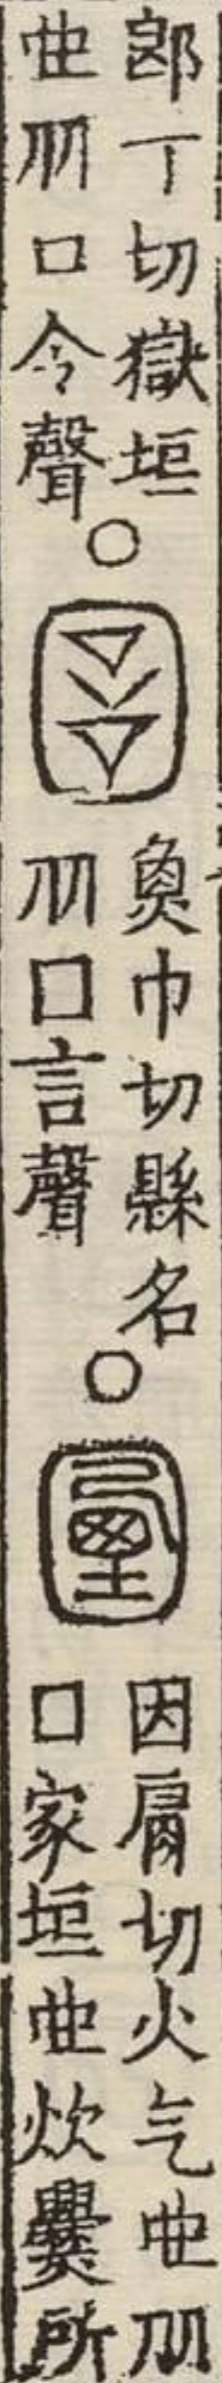 郎丁切獄垣
也从口令聲
○
圁
魚巾切縣名
从口言聲
○
因肩切火气也从
口家垣也炊爨所